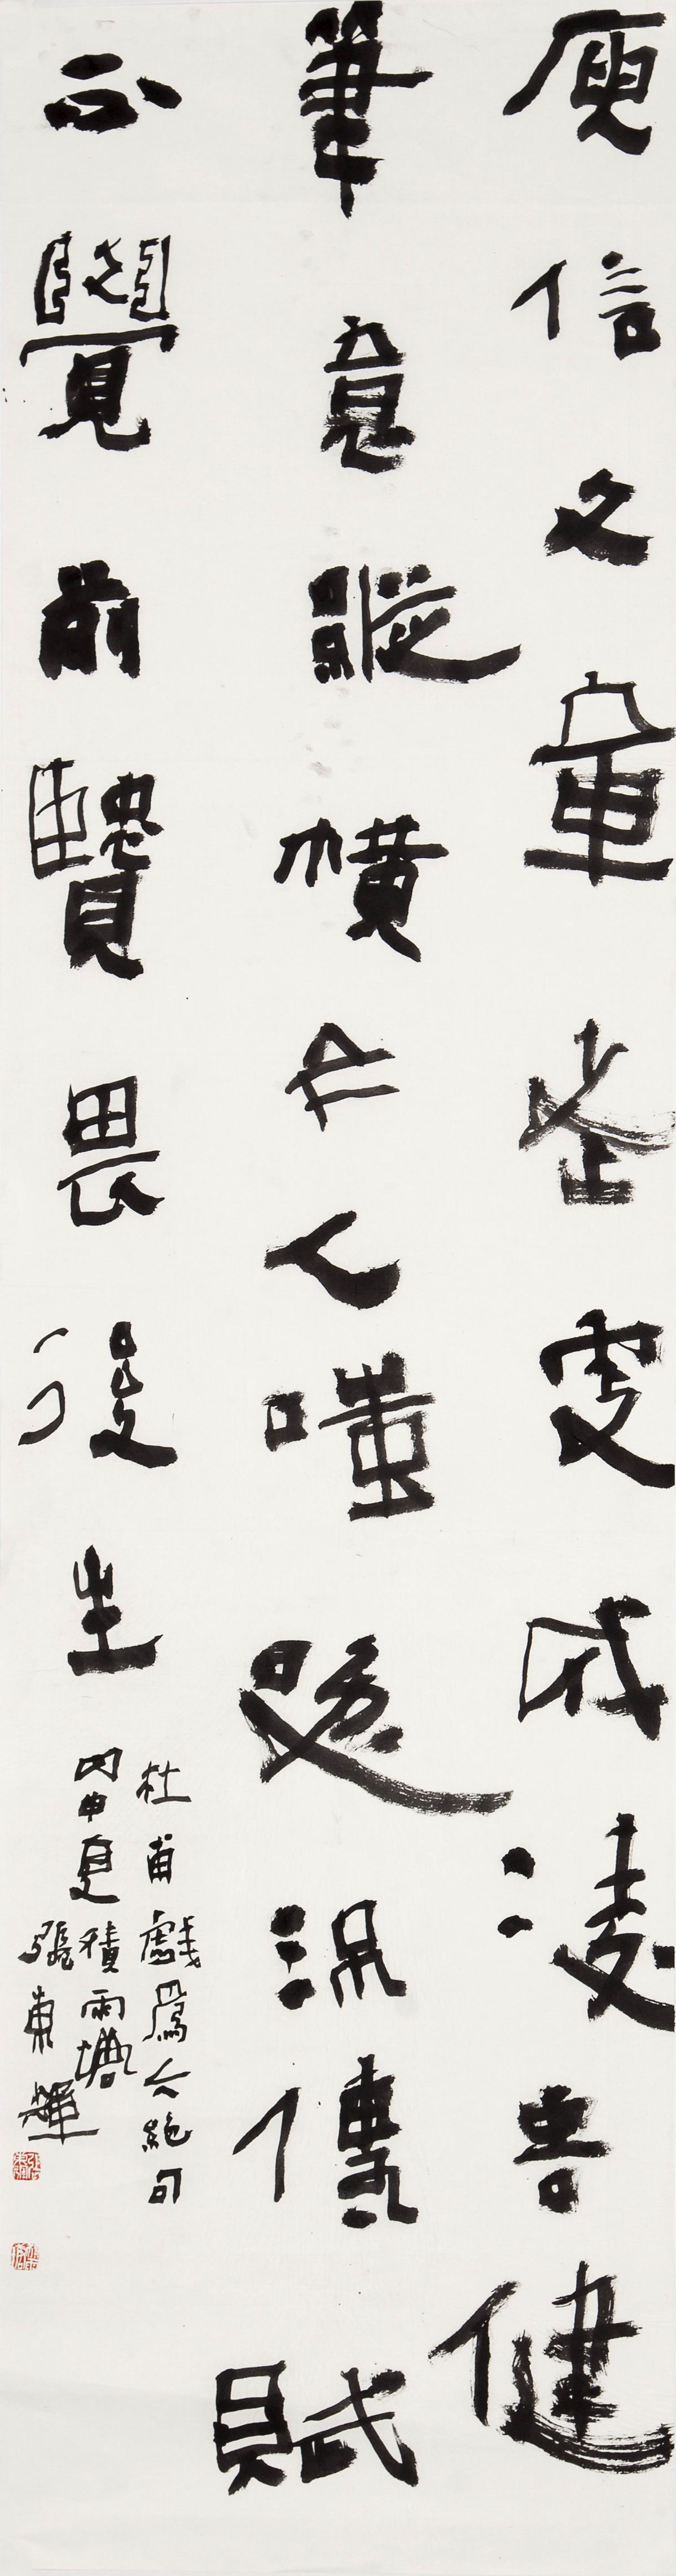 庾信文章老更成凌雲健
筆意縱橫今人嗤點流傳賦
不覺前賢畏後生
杜甫戲爲六絕句
丙申夏積雨塘
張東輝